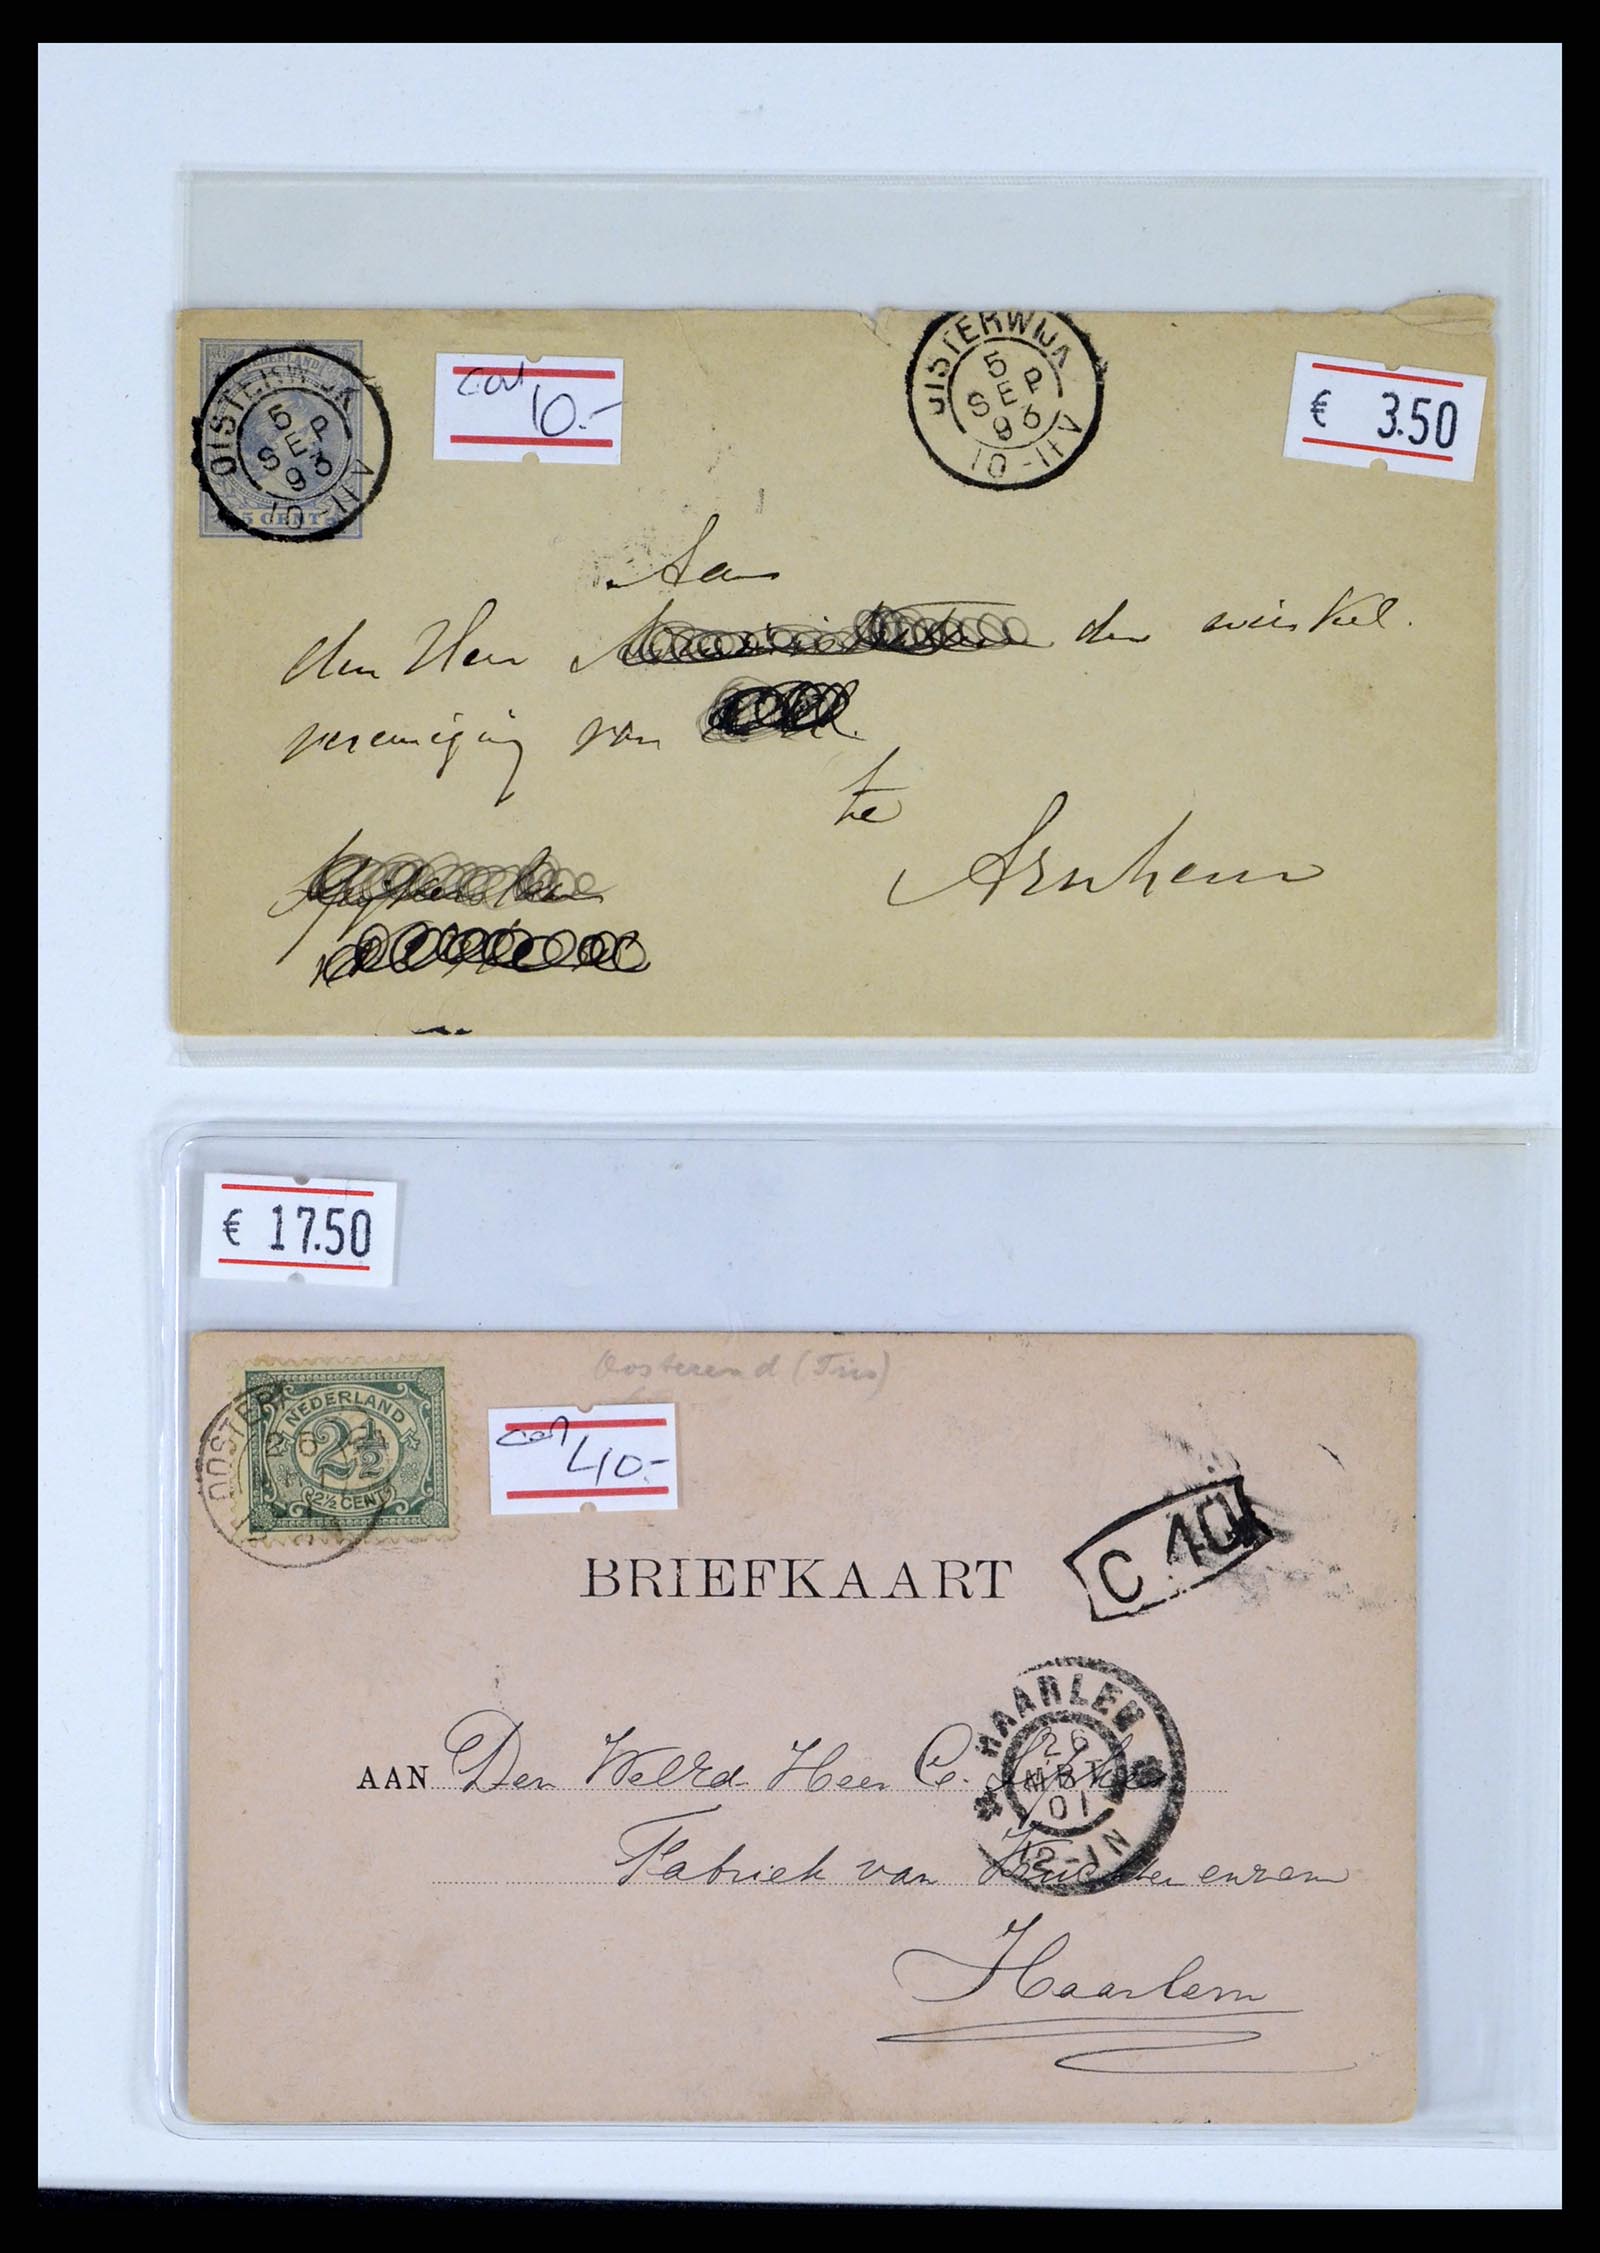 NEDERLAND
OISTERWIJK
5 SEP 93
10-11V
5 CENT
cat
10.-
OISTERWIJK
5 SEP 93
10-11V
€ 3.50
Aan
den Heer der winkel.
vereeniging van
te
Arnhem
€ 17.50
Oosterend (Tris)
OOSTER
NEDERLAND
2½
2½ CENT
cat
40.-
C 10
BRIEFKAART
HAARLEM
28 MRT 01
12-1N
AAN Den WelEd. Heer C.
Fabriek van
Haarlem